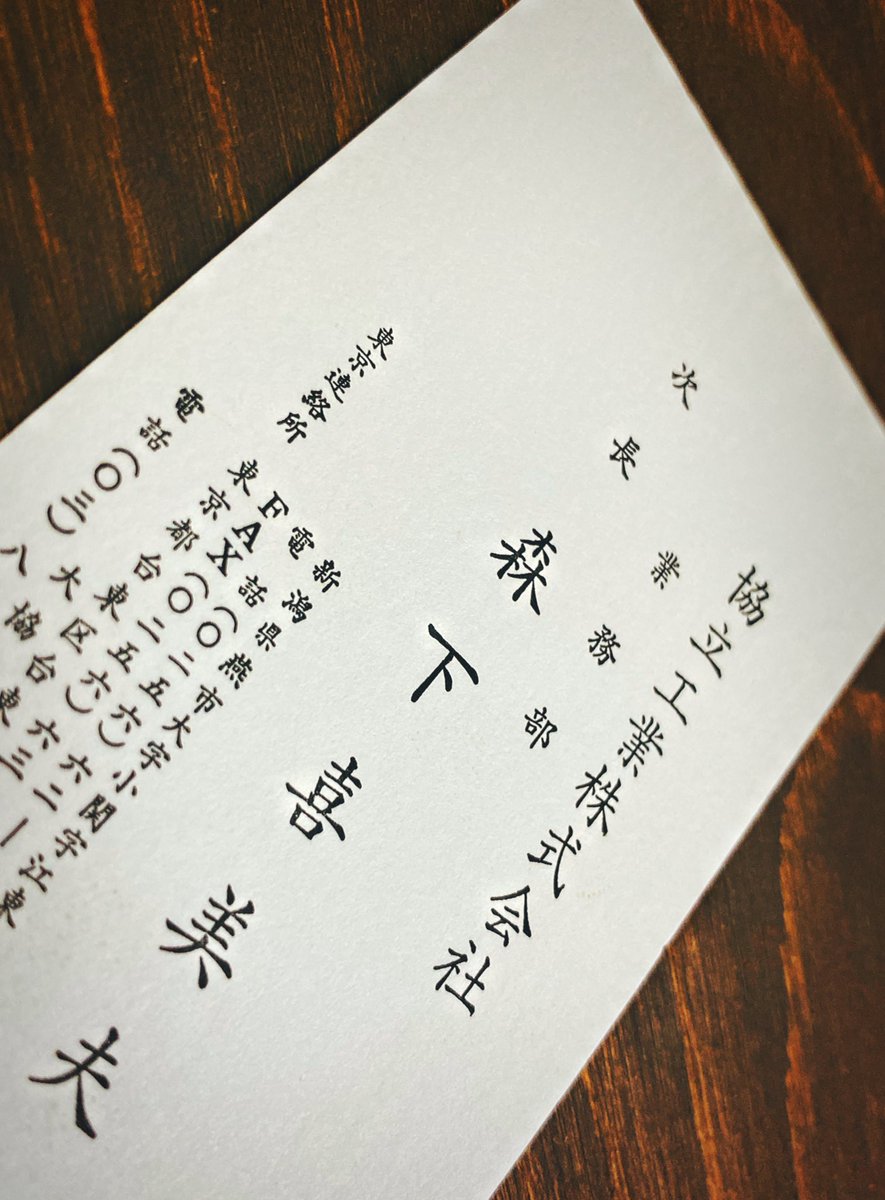 協立工業株式会社
業務部
次長
森下喜美夫
新潟県燕市大字小関字江東
電話(〇二五六)六二
FAX(〇二五六)六三
東京連絡所
東京都台東区台東
大協
電話(〇三)八